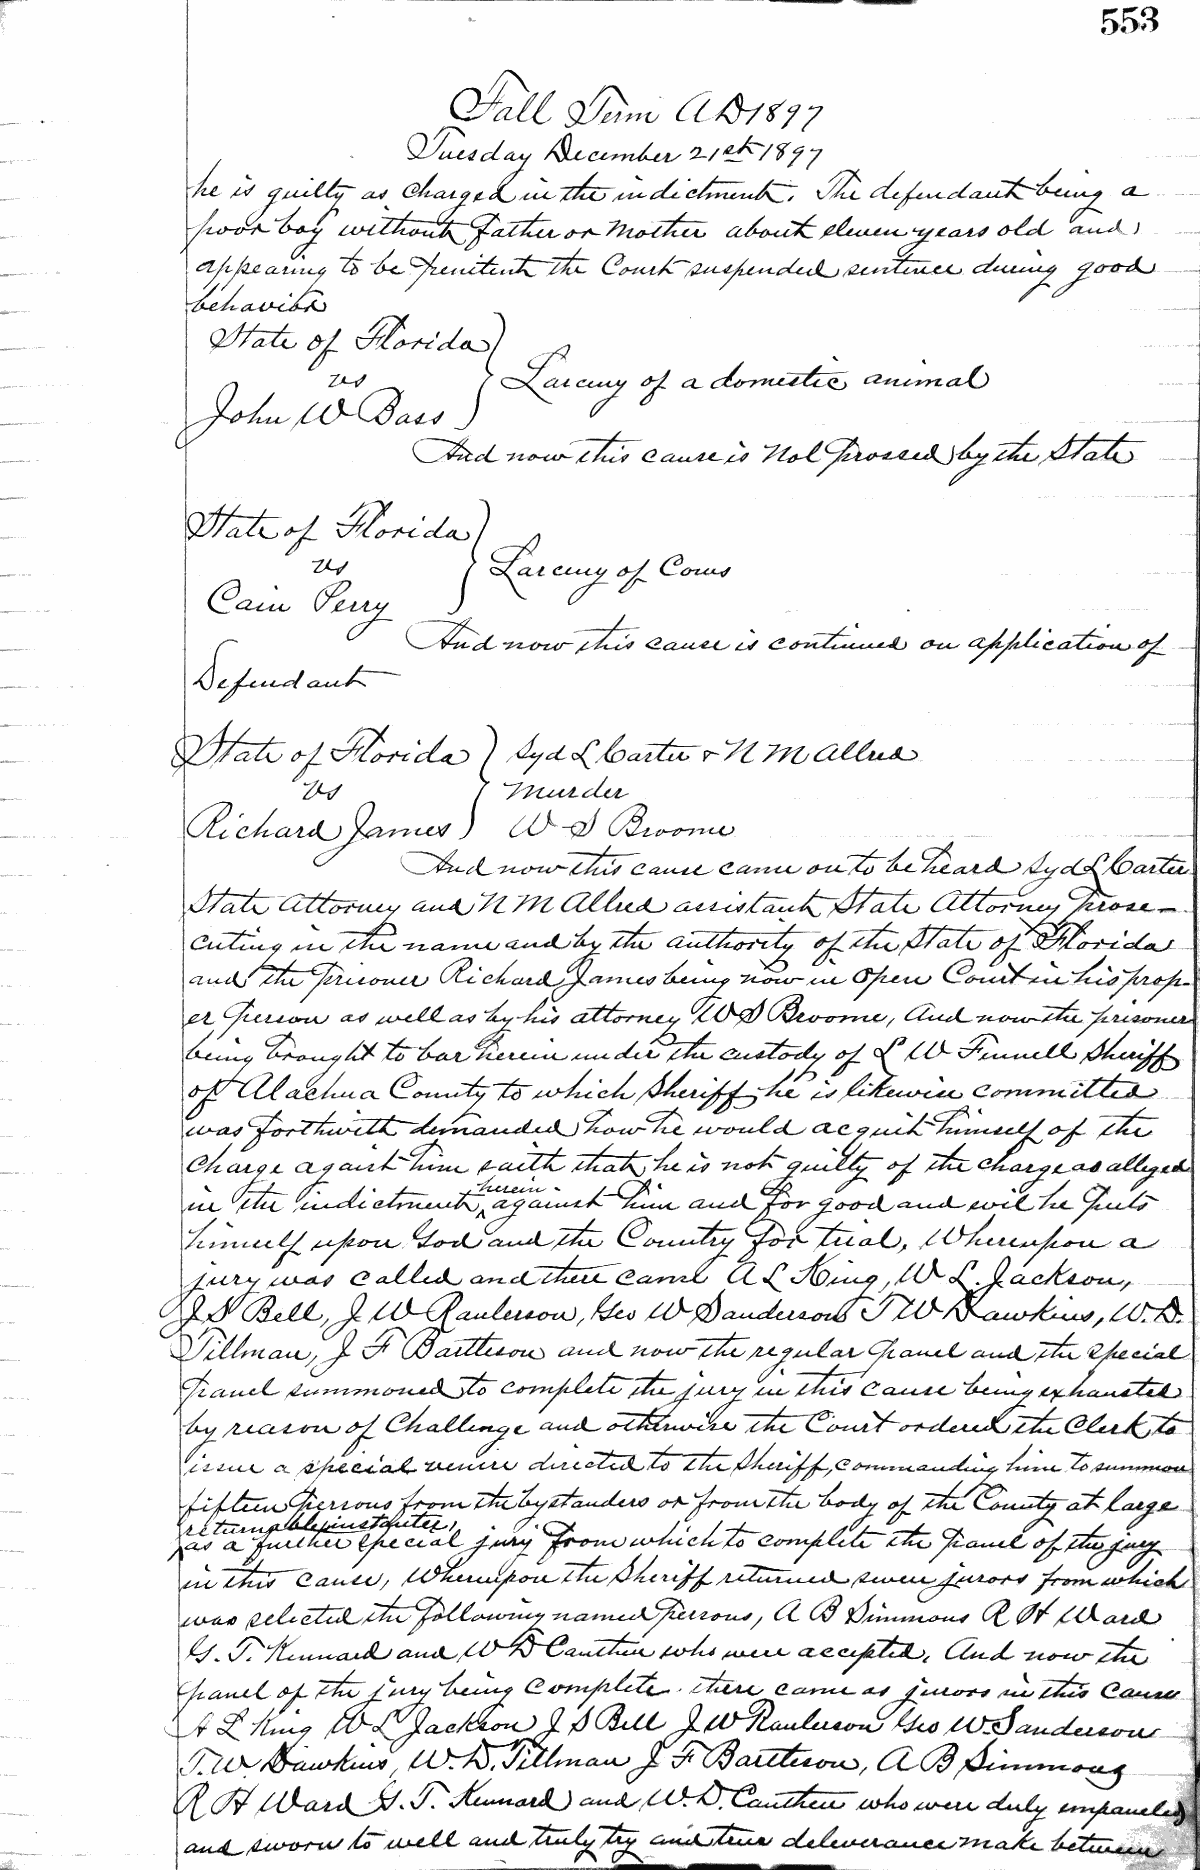 553
Fall Term A D 1897
Tuesday December 21st 1897
he is guilty as charged in the indictment. The defendant being a
poor boy without Father or Mother about eleven years old and
appearing to be penitent the Court suspended sentence during good
behavior
State of Florida
vs
John W Bass
Larceny of a domestic animal
And now this cause is Nol Prossed by the State
State of Florida
vs
Cain Perry
Larceny of Cows
And now this cause is continued on application of
Defendant
State of Florida
vs
Richard James
Syd L Carter & N M Allred
Murder
W S Broome
And now this cause came on to be heard Syd L Carter
State Attorney and N M Allred assistant State Attorney Prose-
cuting in the name and by the authority of the State of Florida
and the prisoner Richard James being now in open Court in his prop-
er person as well as by his attorney W S Broome, And now the prisoner
being brought to bar herein under the custody of L W Fennell Sheriff
of Alachua County to which Sheriff he is likewise committed
was forthwith demanded how he would acquit himself of the
charge against him saith that he is not guilty of the charge as alleged
in the indictment herein against him and for good and evil he Puts
himself upon God and the Country for trial, Whereupon a
jury was called and there came A L King, W L. Jackson,
J S Bell, J W Raulerson, Geo W Sanderson T W Dawkins, W. D.
Tillman, J F Bartleson and now the regular panel and the special
panel summoned to complete the jury in this cause being exhausted
by reason of Challenge and otherwise the Court ordered the Clerk to
issue a special venire directed to the Sheriff, commanding him to summon
fifteen persons from the bystanders or from the body of the County at large
returnable instanter,
as a further special jury from which to complete the panel of the jury
in this cause, Whereupon the Sheriff returned seven jurors from which
was selected the following named persons, A B Simmons R H Ward
G. T. Kennard and W D Cauthen who were accepted, And now the
panel of the jury being complete there came as jurors in this cause
A L King W L Jackson J S Bell J W Raulerson Geo W. Sanderson
T. W. Dawkins, W. D. Tillman J F Bartleson, A B Simmons
R H Ward G. T. Kennard and W. D. Cauthen who were duly empaneled
and sworn to well and truly try and true deliverance make between